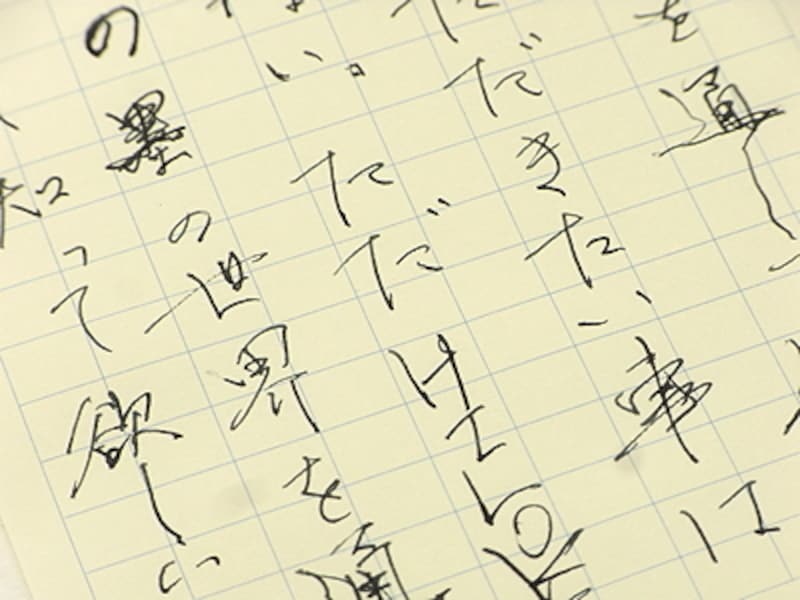 を通し
だきたい事は
ない。ただ
の墨の世界を通
知って欲しい